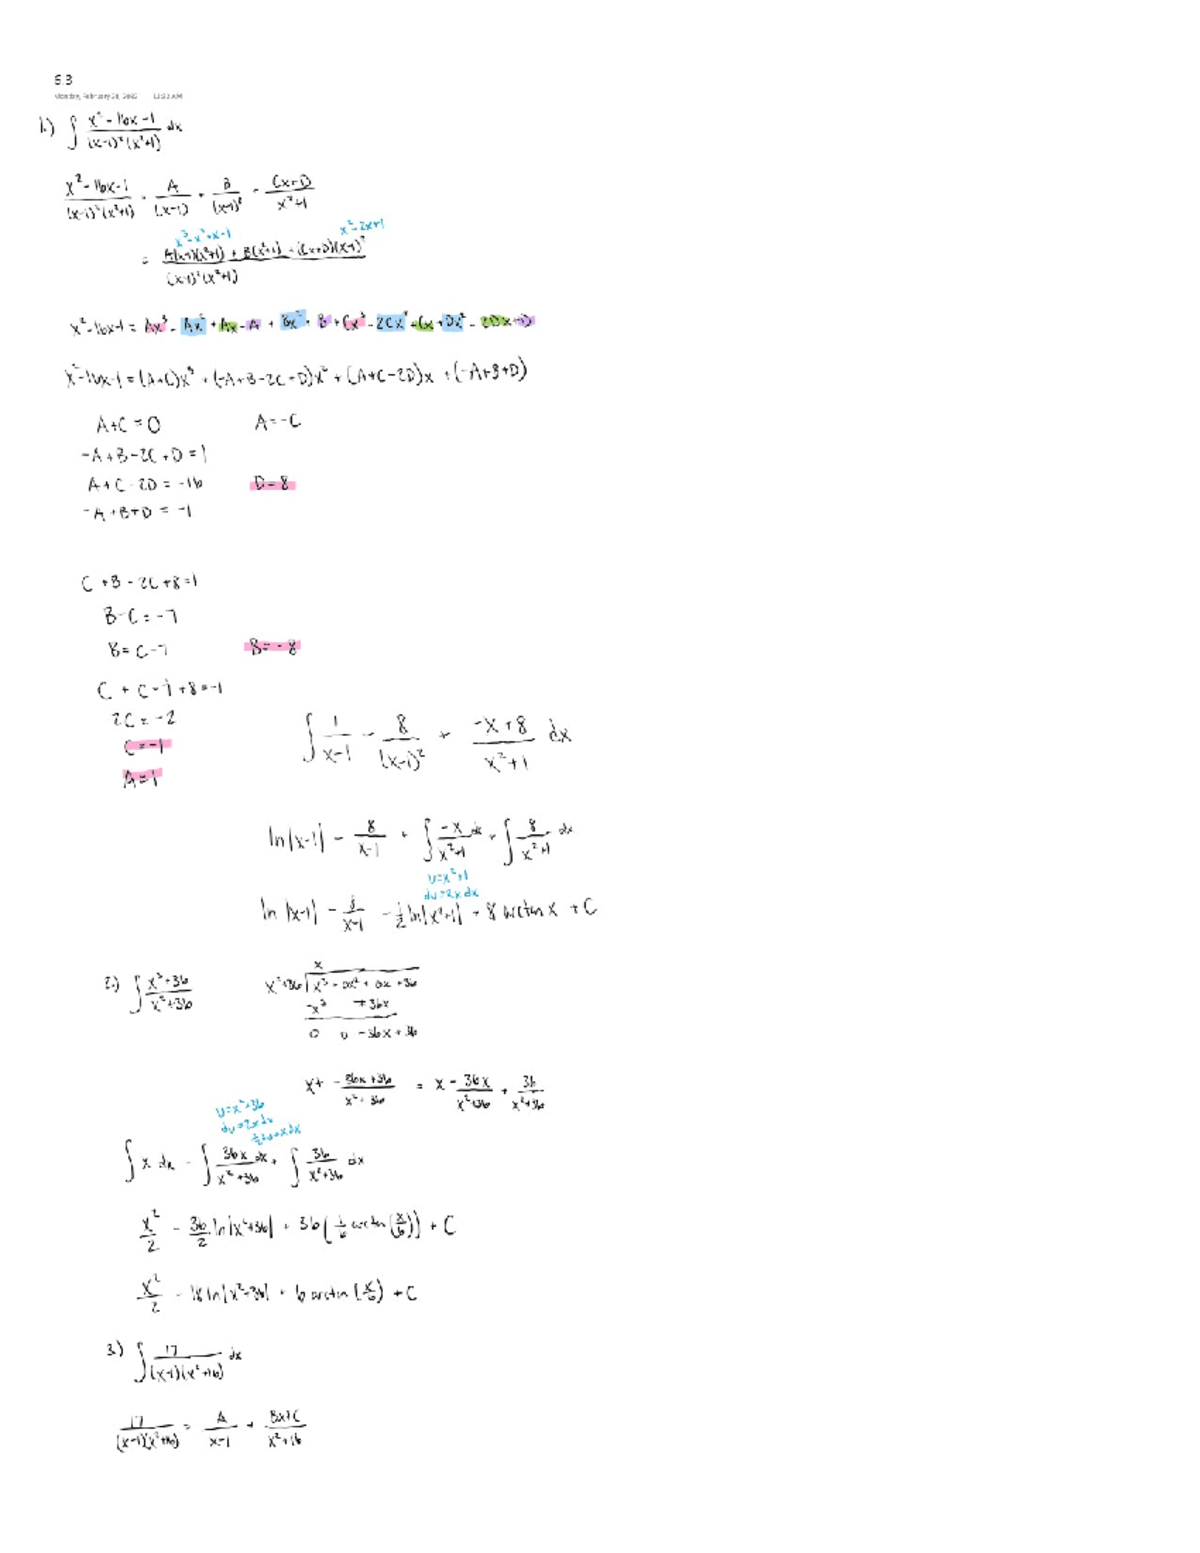 6.3
Monday, February 28, 2022 11:32 AM
1.) ∫ (x² - 16x - 1)/((x-1)²(x²+1)) dx
(x² - 16x - 1)/((x-1)²(x²+1)) = A/(x-1) + B/(x-1)² + (Cx+D)/(x²+1)
x³-x²+x-1 x²-2x+1
= (A(x-1)(x²+1) + B(x²+1) + (Cx+D)(x-1)²)/((x-1)²(x²+1))
x²-16x-1 = Ax³ - Ax² + Ax - A + Bx² + B + Cx³ - 2Cx² + Cx + Dx² - 2Dx + D
x²-16x-1 = (A+C)x³ + (-A+B-2C+D)x² + (A+C-2D)x + (-A+B+D)
A+C = 0 A = -C
-A+B-2C+D = 1
A+C-2D = -16 D = 8
-A+B+D = -1
C+B-2C+8 = 1
B-C = -7
B = C-7 B = -8
C + C-7+8 = -1
2C = -2
C = -1
A = 1
∫ 1/(x-1) - 8/(x-1)² + (-x+8)/(x²+1) dx
ln|x-1| - 8/(x-1) + ∫ -x/(x²+1) dx + ∫ 8/(x²+1) dx
u=x²+1
du=2x dx
ln|x-1| - 8/(x-1) - ½ ln|x²+1| + 8 arctan x + C
2.) ∫ (x³+36)/(x²+36)
x
x²+36 x³ + 0x² + 0x + 36
-x³ +36x
0 0 -36x + 36
x + (-36x+36)/(x²+36) = x - 36x/(x²+36) + 36/(x²+36)
u=x²+36
du=2x dx
½du=x dx
∫ x dx - ∫ 36x/(x²+36) dx + ∫ 36/(x²+36) dx
x²/2 - 36/2 ln|x²+36| + 36(1/6 arctan(x/6)) + C
x²/2 - 18 ln|x²+36| + 6 arctan(x/6) + C
3.) ∫ 17/((x-1)(x²+16)) dx
17/((x-1)(x²+16)) = A/(x-1) + (Bx+C)/(x²+16)